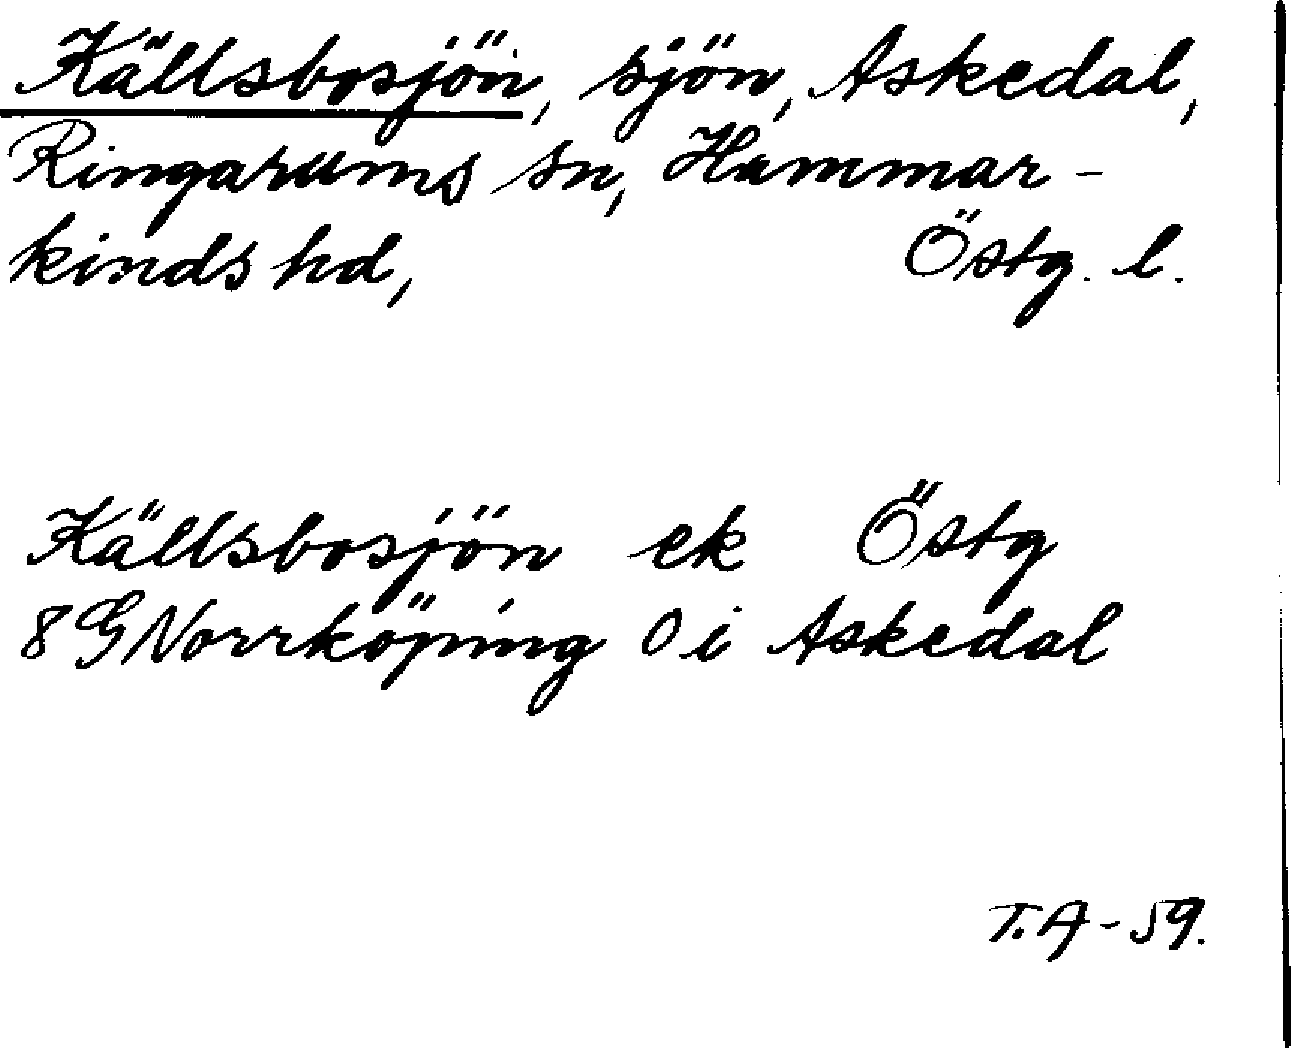 Källsbosjön, sjön, Askedal,
Ringarums sn, Hammar-
kinds hd, Östg. l.
Källsbosjön ek Östg
8 G Norrköping O i Askedal
T.A-59.